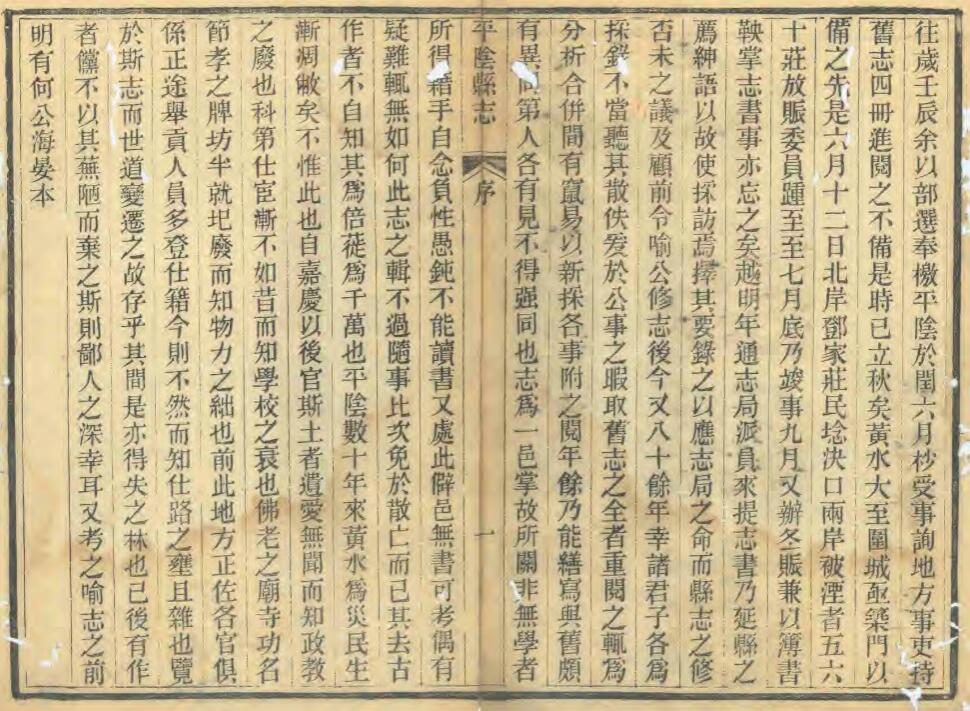 往歲壬辰余以部選奉檄平陰於閏六月杪受事詢地方事吏持
舊志四冊進閱之不備是時已立秋矣黃水大至圍城亟築門以
備之先是六月十二日北岸鄧家莊民埝決口兩岸被湮者五六
十莊放賑委員踵至至七月底乃竣事九月又辦冬賑兼以簿書
鞅掌志書事亦忘之矣越明年通志局派員來提志書乃延縣之
薦紳語以故使採訪焉擇其要錄之以應志局之命而縣志之修
否未之議及顧前令喻公修志後今又八十餘年幸諸君子各為
採錄不當聽其散佚爰於公事之暇取舊志之全者重閱之輒為
分析合併間有竄易以新採各事附之閱年餘乃能繕寫與舊頗
有異同第人各有見不得强同也志爲一邑掌故所關非無學者
平陰縣志 序 一
所得藉手自念負性愚鈍不能讀書又處此僻邑無書可考偶有
疑難輒無如何此志之輯不過隨事比次免於散亡而已其去古
作者不自知其爲倍蓰爲千萬也平陰數十年來黃水爲災民生
漸凋敝矣不惟此也自嘉慶以後官斯土者遺愛無聞而知政教
之廢也科第仕宦漸不如昔而知學校之衰也佛老之廟寺功名
節孝之牌坊半就圯廢而知物力之絀也前此地方正佐各官俱
係正途舉貢人員多登仕籍今則不然而知仕路之壅且雜也覽
於斯志而世道變遷之故存乎其間是亦得失之林也已後有作
者儻不以其蕪陋而棄之斯則鄙人之深幸耳又考之喻志之前
明有何公海晏本